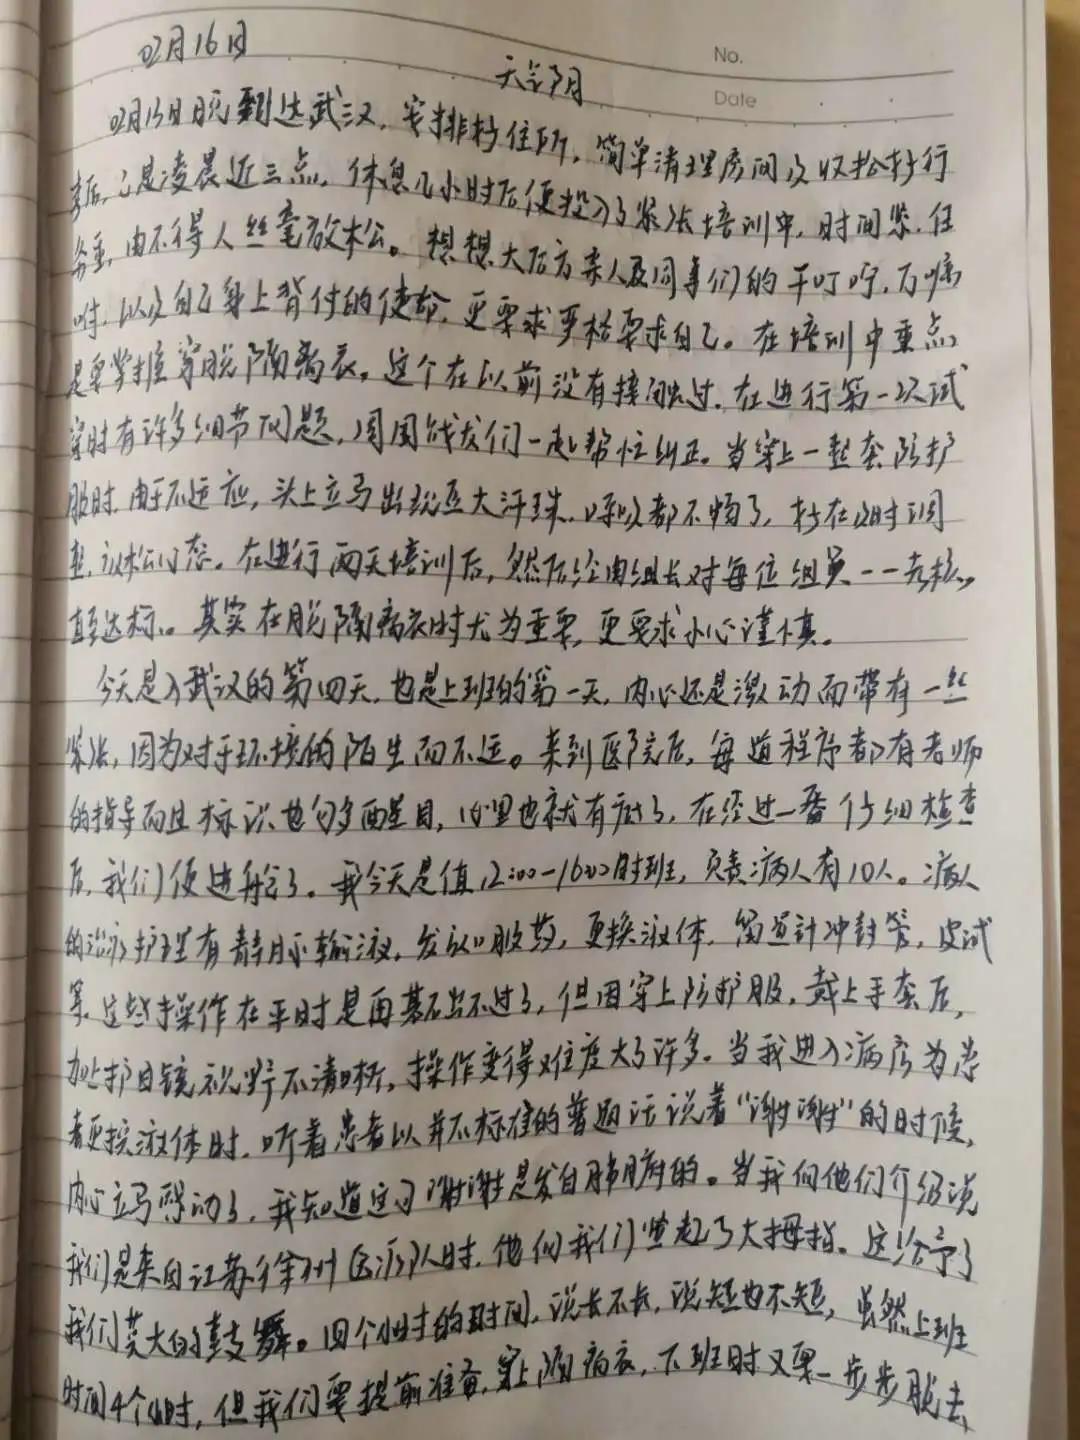 02月16日
No.
天气阴
Date
02月13日晚到达武汉，安排好住所，简单清理房间及收拾好行
李后，已是凌晨近三点，休息几小时后便投入了紧张培训中，时间紧，任
务重，由不得人丝毫放松。想想大后方亲人及同事们的千叮咛，万嘱
咐，以及自己身上背付的使命，更要求严格要求自己。在培训中重点
是要掌握穿脱隔离衣，这个在以前没有接触过，在进行第一次试
穿时有许多细节问题，周围战友们一起帮忙纠正。当穿上一整套防护
服时，由于不适应，头上立马出现豆大汗珠，呼吸都不畅了，好在及时调
整，放松心态。在进行两天培训后，然后经由组长对每位组员一一考核，
直至达标。其实在脱隔离衣时尤为重要，更要求小心谨慎。
今天是入武汉的第四天，也是上班的第一天，内心还是激动而带有一丝
紧张，因为对于环境的陌生而不适。来到医院后，每道程序都有老师
的指导而且标识也够醒目，心里也就有底了，在经过一番仔细检查
后，我们便进舱了。我今天是值12:00-16:00时班，负责病人有10人。病人
的治疗护理有静脉输液，发放口服药，更换液体，留置针冲封管，皮试
等，这些操作在平时是再基础不过了，但因穿上防护服，戴上手套后，
加上护目镜视野不清晰，操作变得难度大了许多。当我进入病房为患
者更换液体时，听着患者以并不标准的普通话说着“谢谢”的时候，
内心立马感动了，我知道这句谢谢是发自肺腑的。当我向他们介绍说
我们是来自江苏徐州医疗队时，他们向我们竖起了大拇指。这给予了
我们莫大的鼓舞。四个小时的时间，说长不长，说短也不短，虽然上班
时间4个小时，但我们要提前准备，穿上隔离衣，下班时又要一步步脱去